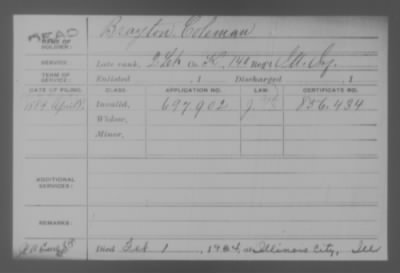 DEAD
NAME OF SOLDIER: Brayton, Coleman
SERVICE: Late rank, 2 Lt Co. K, 140 Reg't Ill. Inf.
TERM OF SERVICE: Enlisted , 1 Discharged , 1
DATE OF FILING. CLASS. APPLICATION NO. LAW. CERTIFICATE NO.
1889 April Invalid, 697.902 856.434
Widow,
Minor,
ADDITIONAL SERVICES:
REMARKS:
Died Feb 1, 1924, at Illinois City, Ill